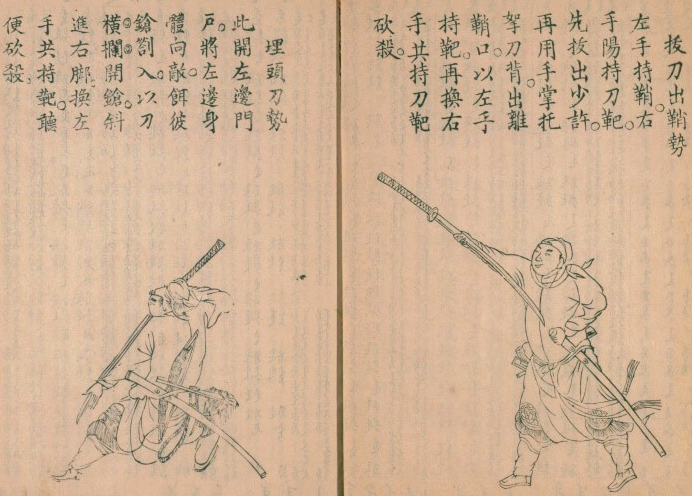 拔刀出鞘勢
左手持鞘。右
手陽持刀靶。
先拔出少許。
再用手掌托
拏刀背。出離
鞘口以左手
持靶。再換右
手共持刀靶
砍殺。
埋頭刀勢
此開左邊門
戸。將左邊身
體向敵餌彼
鎗劄入。以刀
橫攔開鎗。斜
進右脚。換左
手共持靶。聽
便砍殺